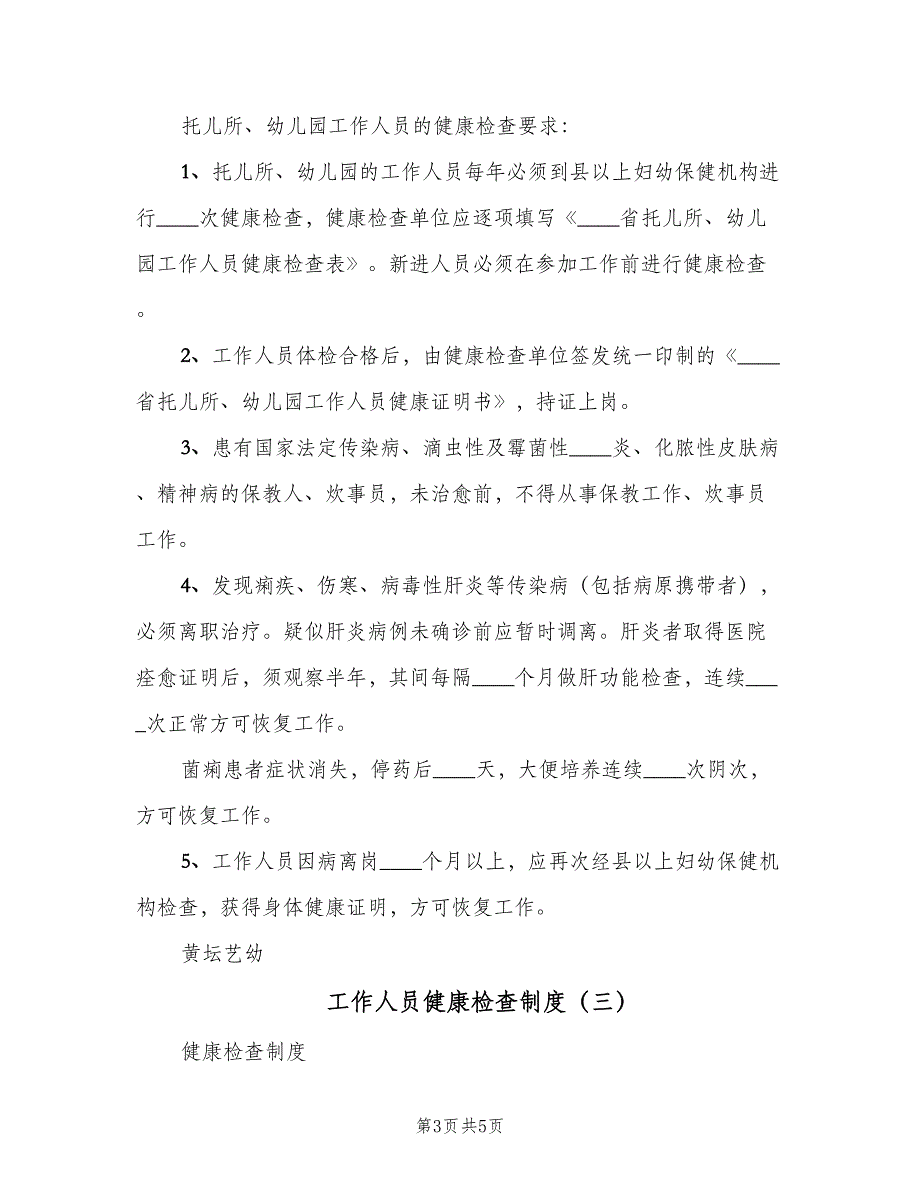 托儿所、幼儿园工作人员的健康检查要求：
1、托儿所、幼儿园的工作人员每年必须到县以上妇幼保健机构进
行____次健康检查，健康检查单位应逐项填写《____省托儿所、幼儿
园工作人员健康检查表》。新进人员必须在参加工作前进行健康检查
。
2、工作人员体检合格后，由健康检查单位签发统一印制的《____
省托儿所、幼儿园工作人员健康证明书》，持证上岗。
3、患有国家法定传染病、滴虫性及霉菌性____炎、化脓性皮肤病
、精神病的保教人、炊事员，未治愈前，不得从事保教工作、炊事员
工作。
4、发现痢疾、伤寒、病毒性肝炎等传染病（包括病原携带者），
必须离职治疗。疑似肝炎病例未确诊前应暂时调离。肝炎者取得医院
痊愈证明后，须观察半年，其间每隔____个月做肝功能检查，连续___
_次正常方可恢复工作。
菌痢患者症状消失，停药后____天，大便培养连续____次阴次，
方可恢复工作。
5、工作人员因病离岗____个月以上，应再次经县以上妇幼保健机
构检查，获得身体健康证明，方可恢复工作。
黄坛艺幼
工作人员健康检查制度（三）
健康检查制度
第3页共5页